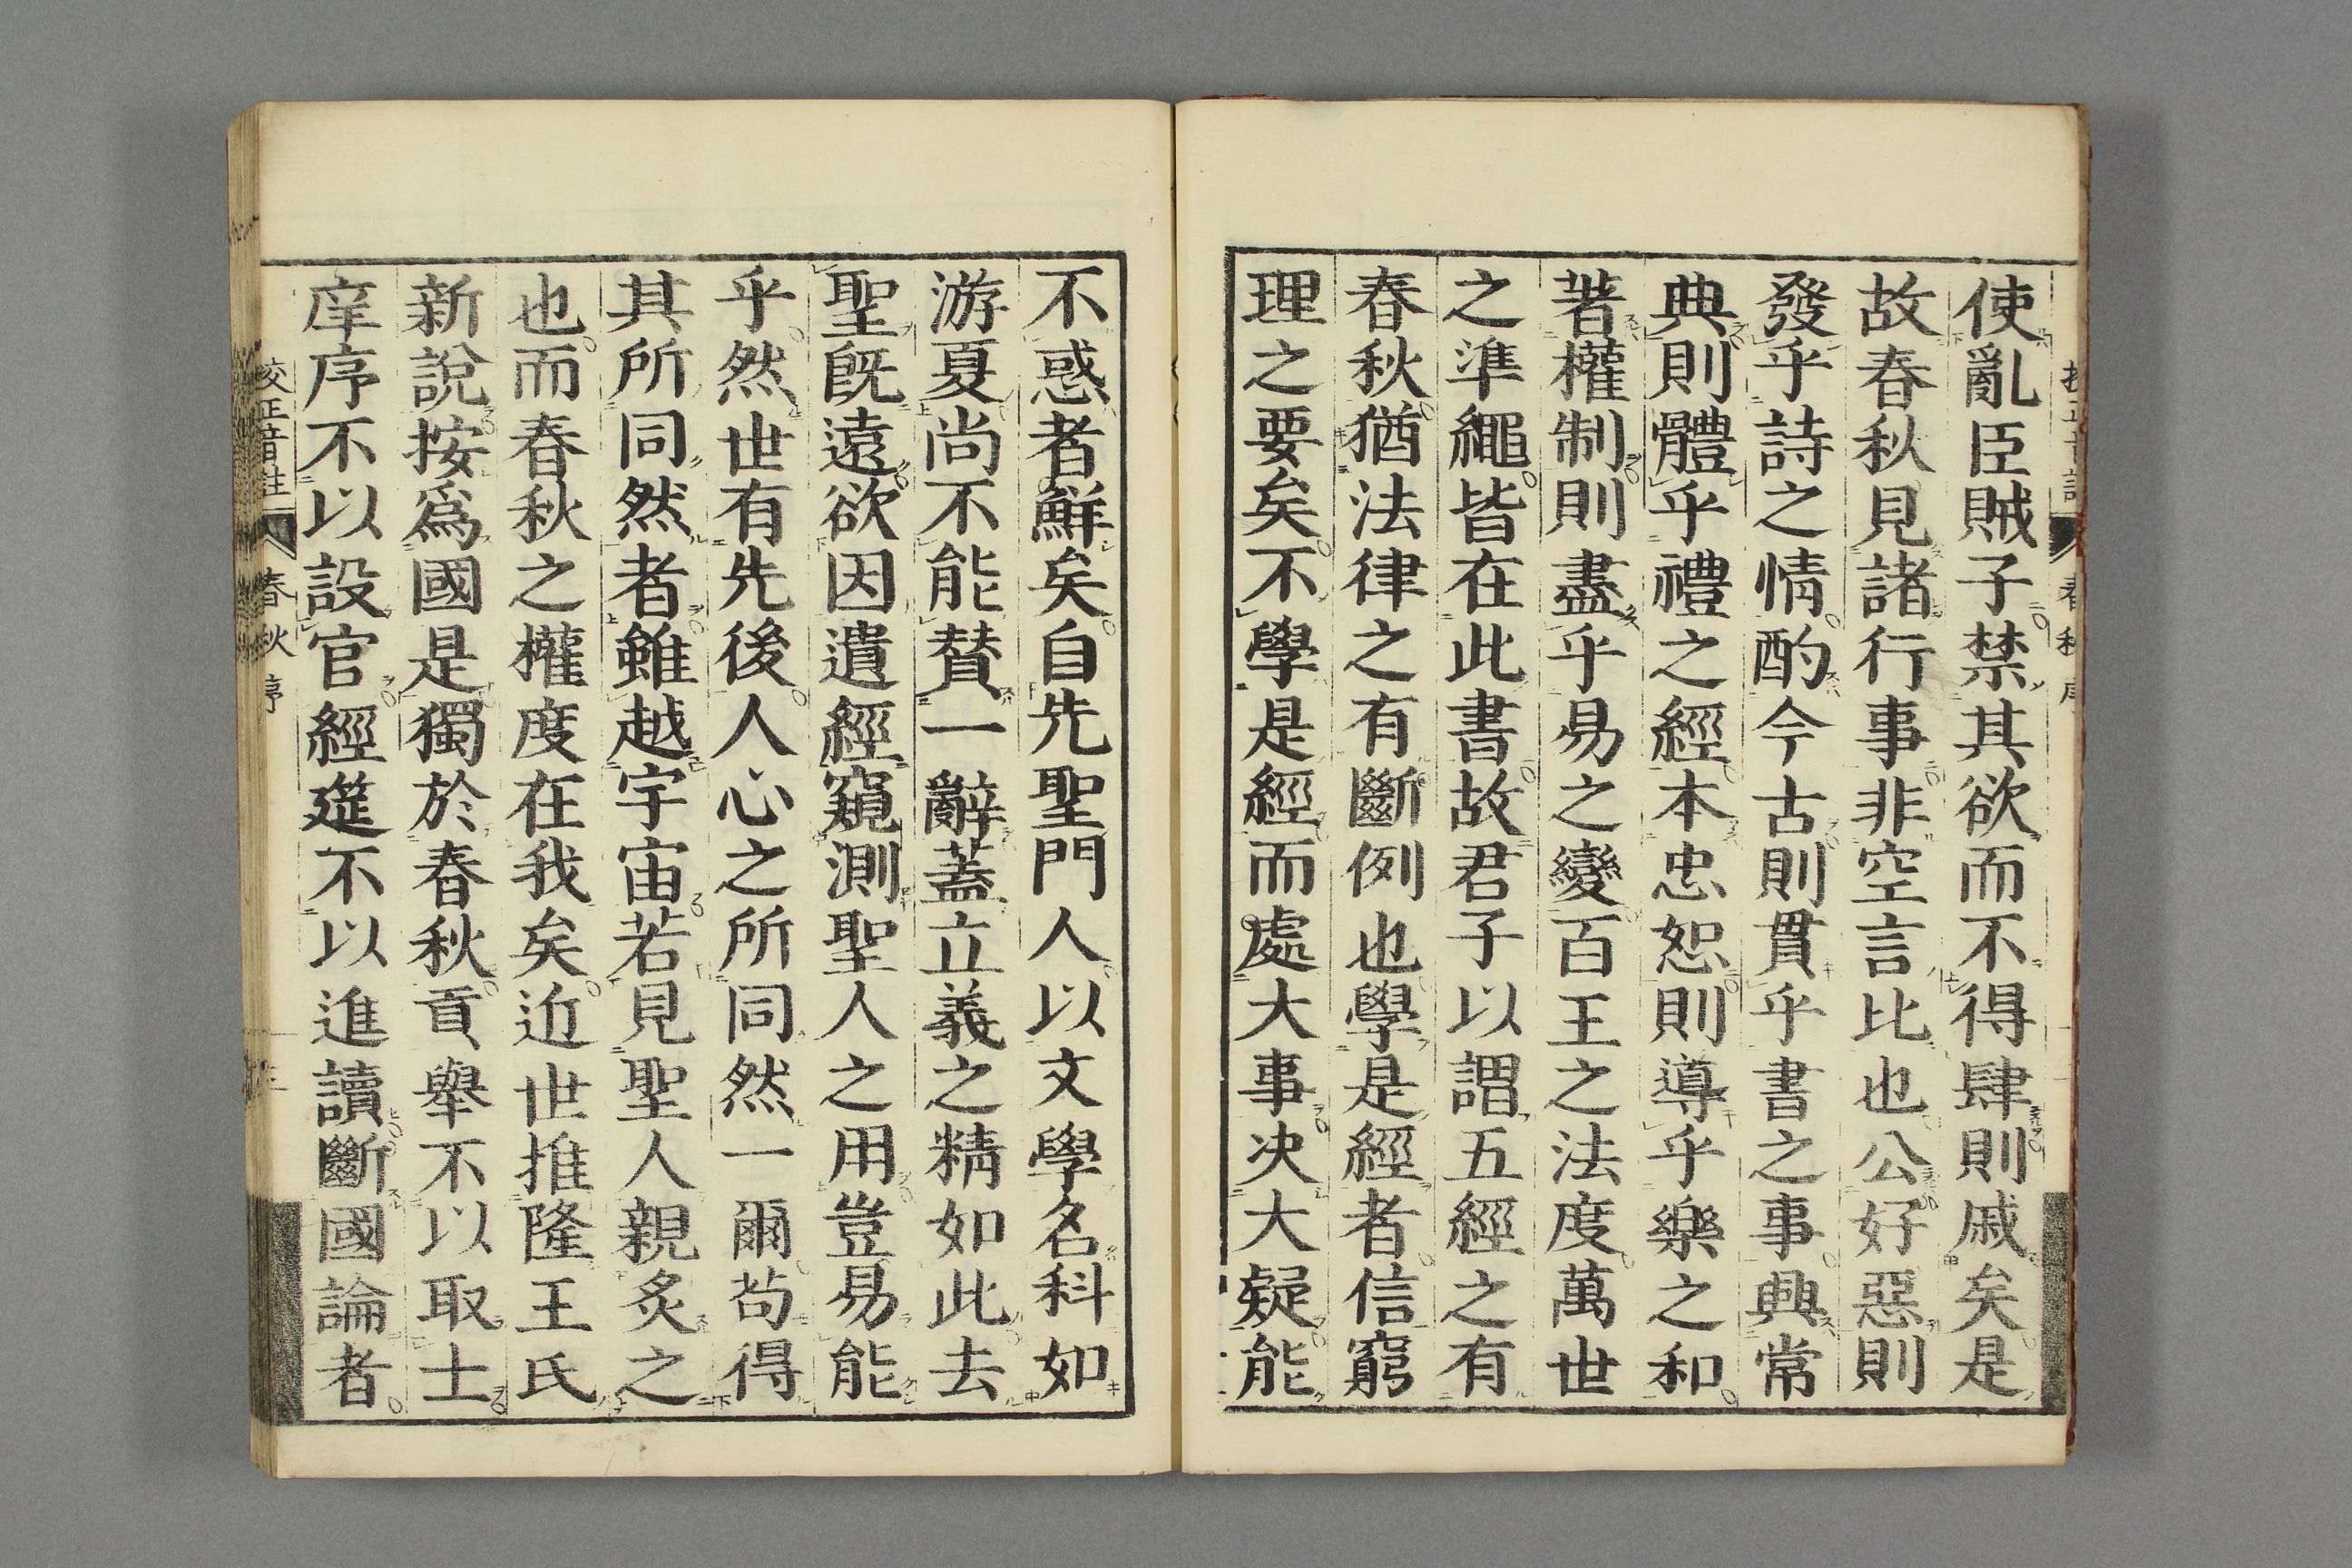 使亂臣賊子禁其欲而不得肆則戚矣是
故春秋見諸行事非空言比也公好惡則
發乎詩之情酌今古則貫乎書之事興常
典則體乎禮之經本忠恕則導乎樂之和
著權制則盡乎易之變百王之法度萬世
之準繩皆在此書故君子以謂五經之有
春秋猶法律之有斷例也學是經者信窮
理之要矣不學是經而處大事决大疑能
不惑者鮮矣自先聖門人以文學名科如
游夏尚不能贊一辭蓋立義之精如此去
聖既遠欲因遺經窺測聖人之用豈易能
乎然世有先後人心之所同然一爾苟得
其所同然者雖越宇宙若見聖人親炙之
也而春秋之權度在我矣近世推隆王氏
新說按爲國是獨於春秋貢舉不以取士
庠序不以設官經筵不以進讀斷國論者
校正音註 春秋序